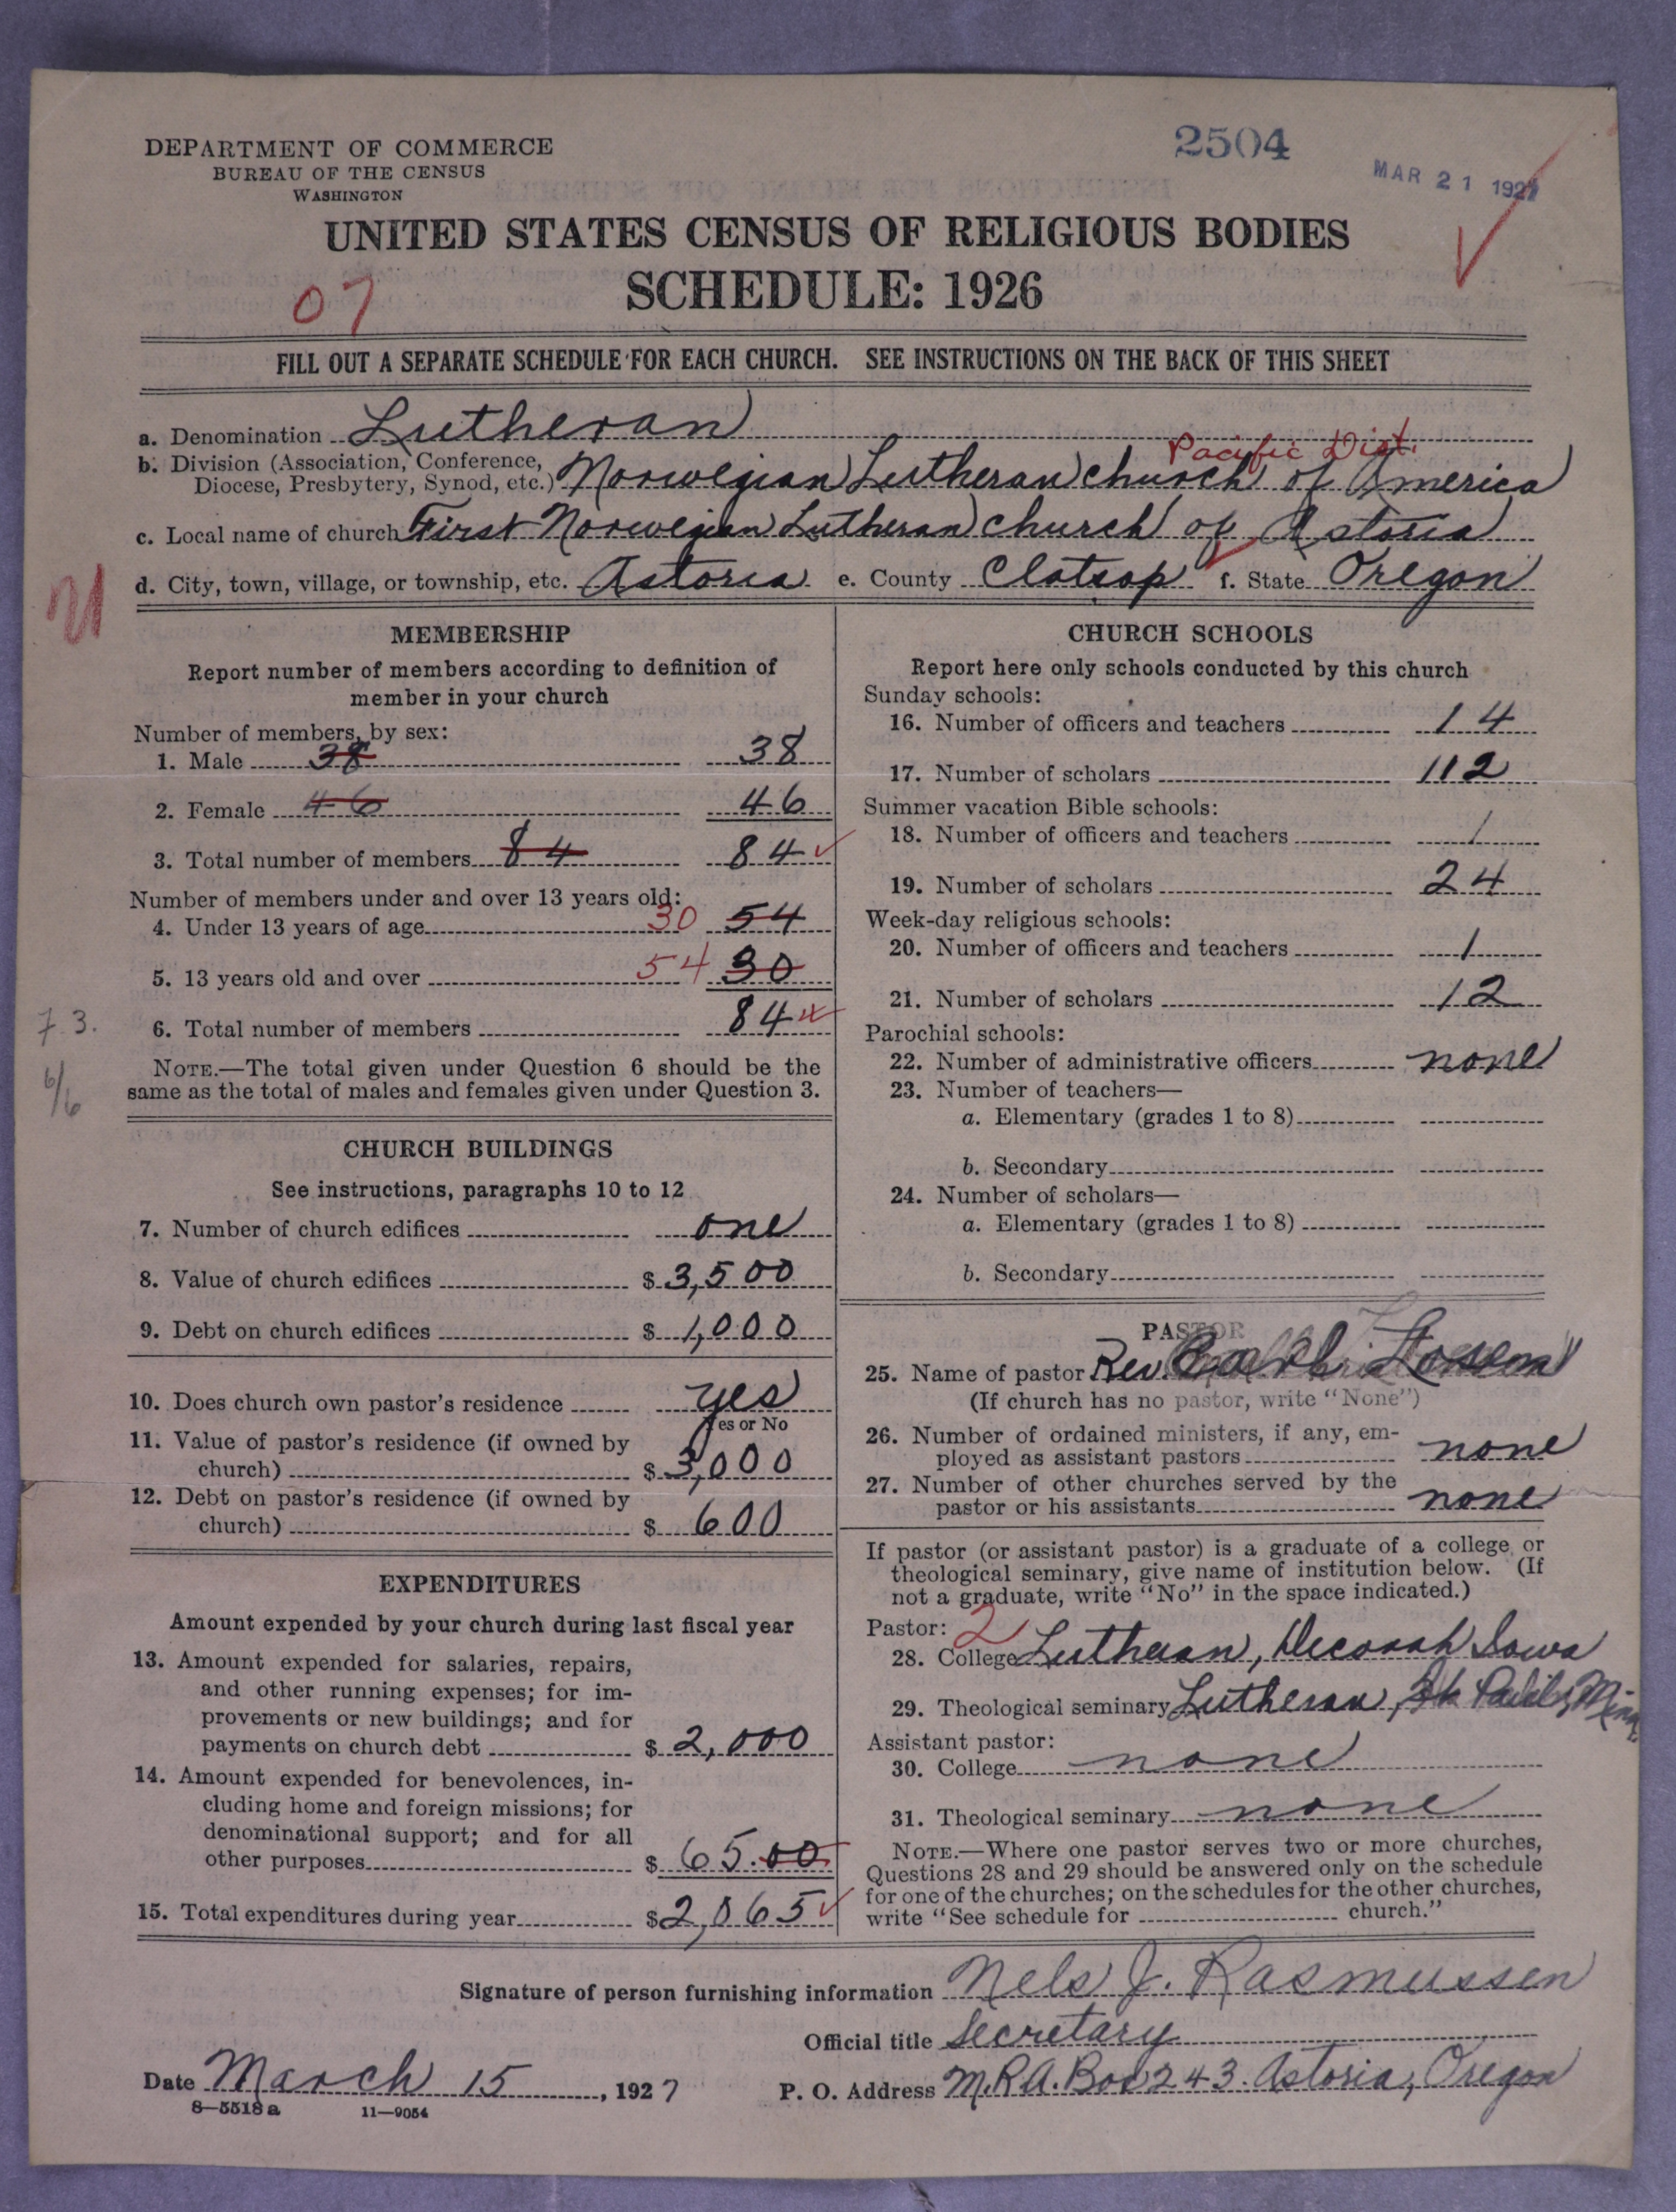 DEPARTMENT OF COMMERCE
BUREAU OF THE CENSUS
WASHINGTON
2504
MAR 21 1927
UNITED STATES CENSUS OF RELIGIOUS BODIES
SCHEDULE: 1926
07
FILL OUT A SEPARATE SCHEDULE FOR EACH CHURCH. SEE INSTRUCTIONS ON THE BACK OF THIS SHEET
a. Denomination Lutheran
Pacific Dist.
b. Division (Association, Conference,
Diocese, Presbytery, Synod, etc.) Norwegian Lutheran church of America
c. Local name of church First Norwegian Lutheran church of Astoria
d. City, town, village, or township, etc. Astoria e. County Clatsop f. State Oregon
21
MEMBERSHIP
Report number of members according to definition of
member in your church
Number of members, by sex:
1. Male 38 38
2. Female 46 46
3. Total number of members 84 84
Number of members under and over 13 years old:
4. Under 13 years of age 30 54
5. 13 years old and over 54 30
6. Total number of members 84
7.3.
6/6
NOTE.—The total given under Question 6 should be the
same as the total of males and females given under Question 3.
CHURCH BUILDINGS
See instructions, paragraphs 10 to 12
7. Number of church edifices one
8. Value of church edifices $ 3,500
9. Debt on church edifices $ 1,000
10. Does church own pastor's residence yes
Yes or No
11. Value of pastor's residence (if owned by
church) $ 3,000
12. Debt on pastor's residence (if owned by
church) $ 600
EXPENDITURES
Amount expended by your church during last fiscal year
13. Amount expended for salaries, repairs,
and other running expenses; for im-
provements or new buildings; and for
payments on church debt $ 2,000
14. Amount expended for benevolences, in-
cluding home and foreign missions; for
denominational support; and for all
other purposes $ 65.00
15. Total expenditures during year $ 2,065
CHURCH SCHOOLS
Report here only schools conducted by this church
Sunday schools:
16. Number of officers and teachers 14
17. Number of scholars 112
Summer vacation Bible schools:
18. Number of officers and teachers 1
19. Number of scholars 24
Week-day religious schools:
20. Number of officers and teachers 1
21. Number of scholars 12
Parochial schools:
22. Number of administrative officers none
23. Number of teachers—
a. Elementary (grades 1 to 8)
b. Secondary
24. Number of scholars—
a. Elementary (grades 1 to 8)
b. Secondary
PASTOR
25. Name of pastor Rev.
(If church has no pastor, write "None")
26. Number of ordained ministers, if any, em-
ployed as assistant pastors none
27. Number of other churches served by the
pastor or his assistants none
If pastor (or assistant pastor) is a graduate of a college or
theological seminary, give name of institution below. (If
not a graduate, write "No" in the space indicated.)
Pastor: 2
28. College Lutheran, Decorah Iowa
29. Theological seminary Lutheran, Minn
Assistant pastor:
30. College none
31. Theological seminary none
NOTE.—Where one pastor serves two or more churches,
Questions 28 and 29 should be answered only on the schedule
for one of the churches; on the schedules for the other churches,
write "See schedule for church."
Signature of person furnishing information Nels J. Rasmussen
Official title Secretary
Date March 15, 1927 P. O. Address M.R.A. Box 243. Astoria, Oregon
8—5518 a 11—9054